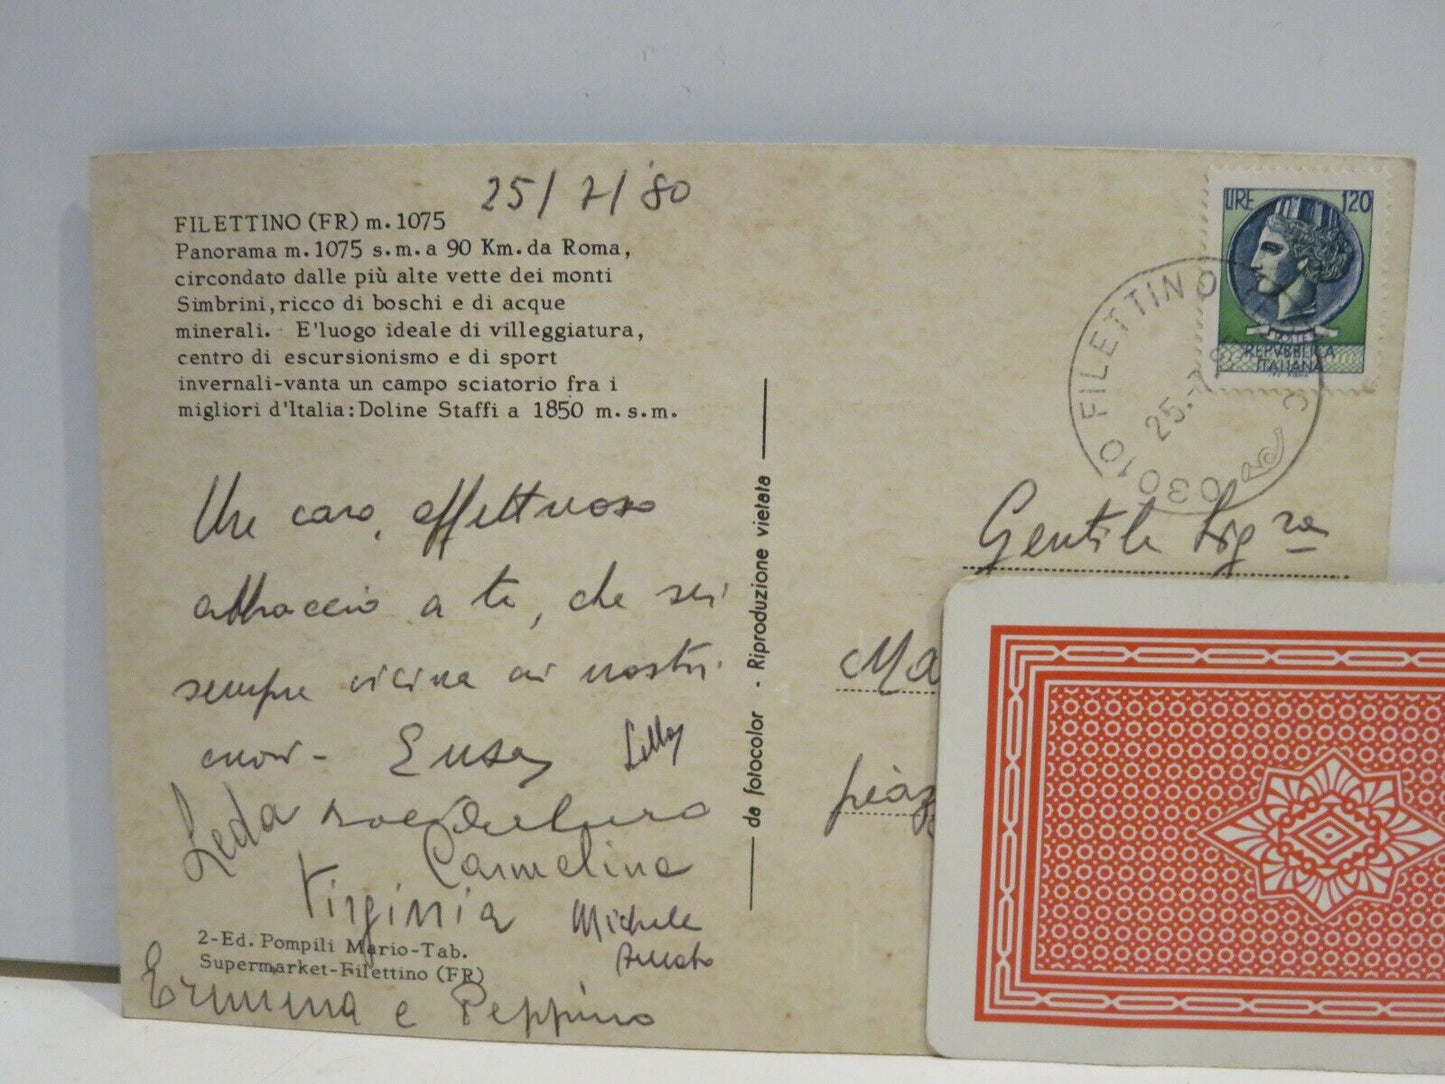 25/7/'80
FILETTINO (FR) m. 1075
Panorama m. 1075 s.m. a 90 Km. da Roma,
circondato dalle più alte vette dei monti
Simbrini, ricco di boschi e di acque
minerali. E'luogo ideale di villeggiatura,
centro di escursionismo e di sport
invernali-vanta un campo sciatorio fra i
migliori d'Italia: Doline Staffi a 1850 m. s. m.
Un caro, affettuoso
abbraccio a te, che sei
sempre vicina ai nostri
cuori -
Leda
Carmelina
Virginia Michele
2-Ed. Pompili Mario-Tab.
Supermarket-Filettino (FR)
Erminia e Peppino
da fotocolor - Riproduzione vietata
LIRE 120
REPVBBLICA
ITALIANA
03010 FILETTINO
25.-7
Gentile Sig ra
Ma
piaz